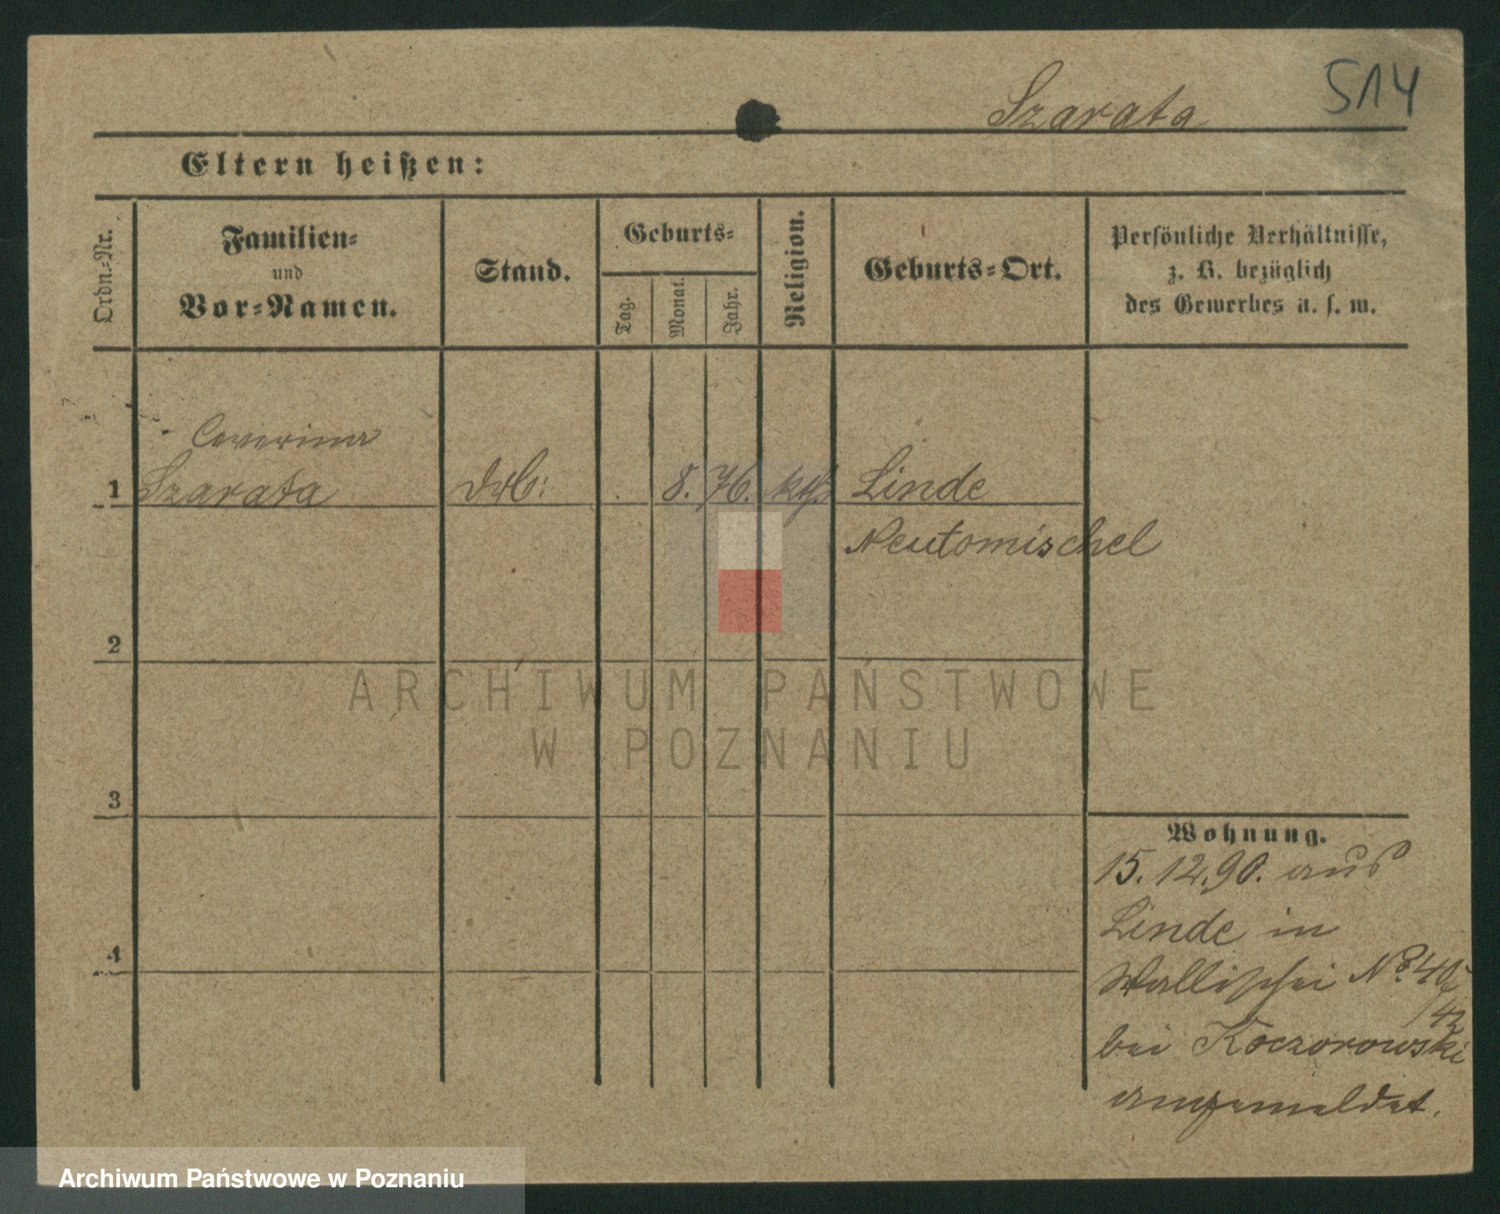 Szarata
514
Eltern heißen:
Ordn.-Nr.
Familien-
und
Vor-Namen.
Stand.
Geburts-
Tag.
Monat.
Jahr.
Religion.
Geburts-Ort.
Persönliche Verhältnisse,
z. B. bezüglich
des Gewerbes u. s. w.
1
Szarata
8. 76. kth
Linde
Neutomischel
2
3
4
Wohnung.
15.12.90. aus
Linde in
Wallischei No 40/42
bei Koczorowski
angemeldet.
ARCHIWUM PAŃSTWOWE
W POZNANIU
Archiwum Państwowe w Poznaniu